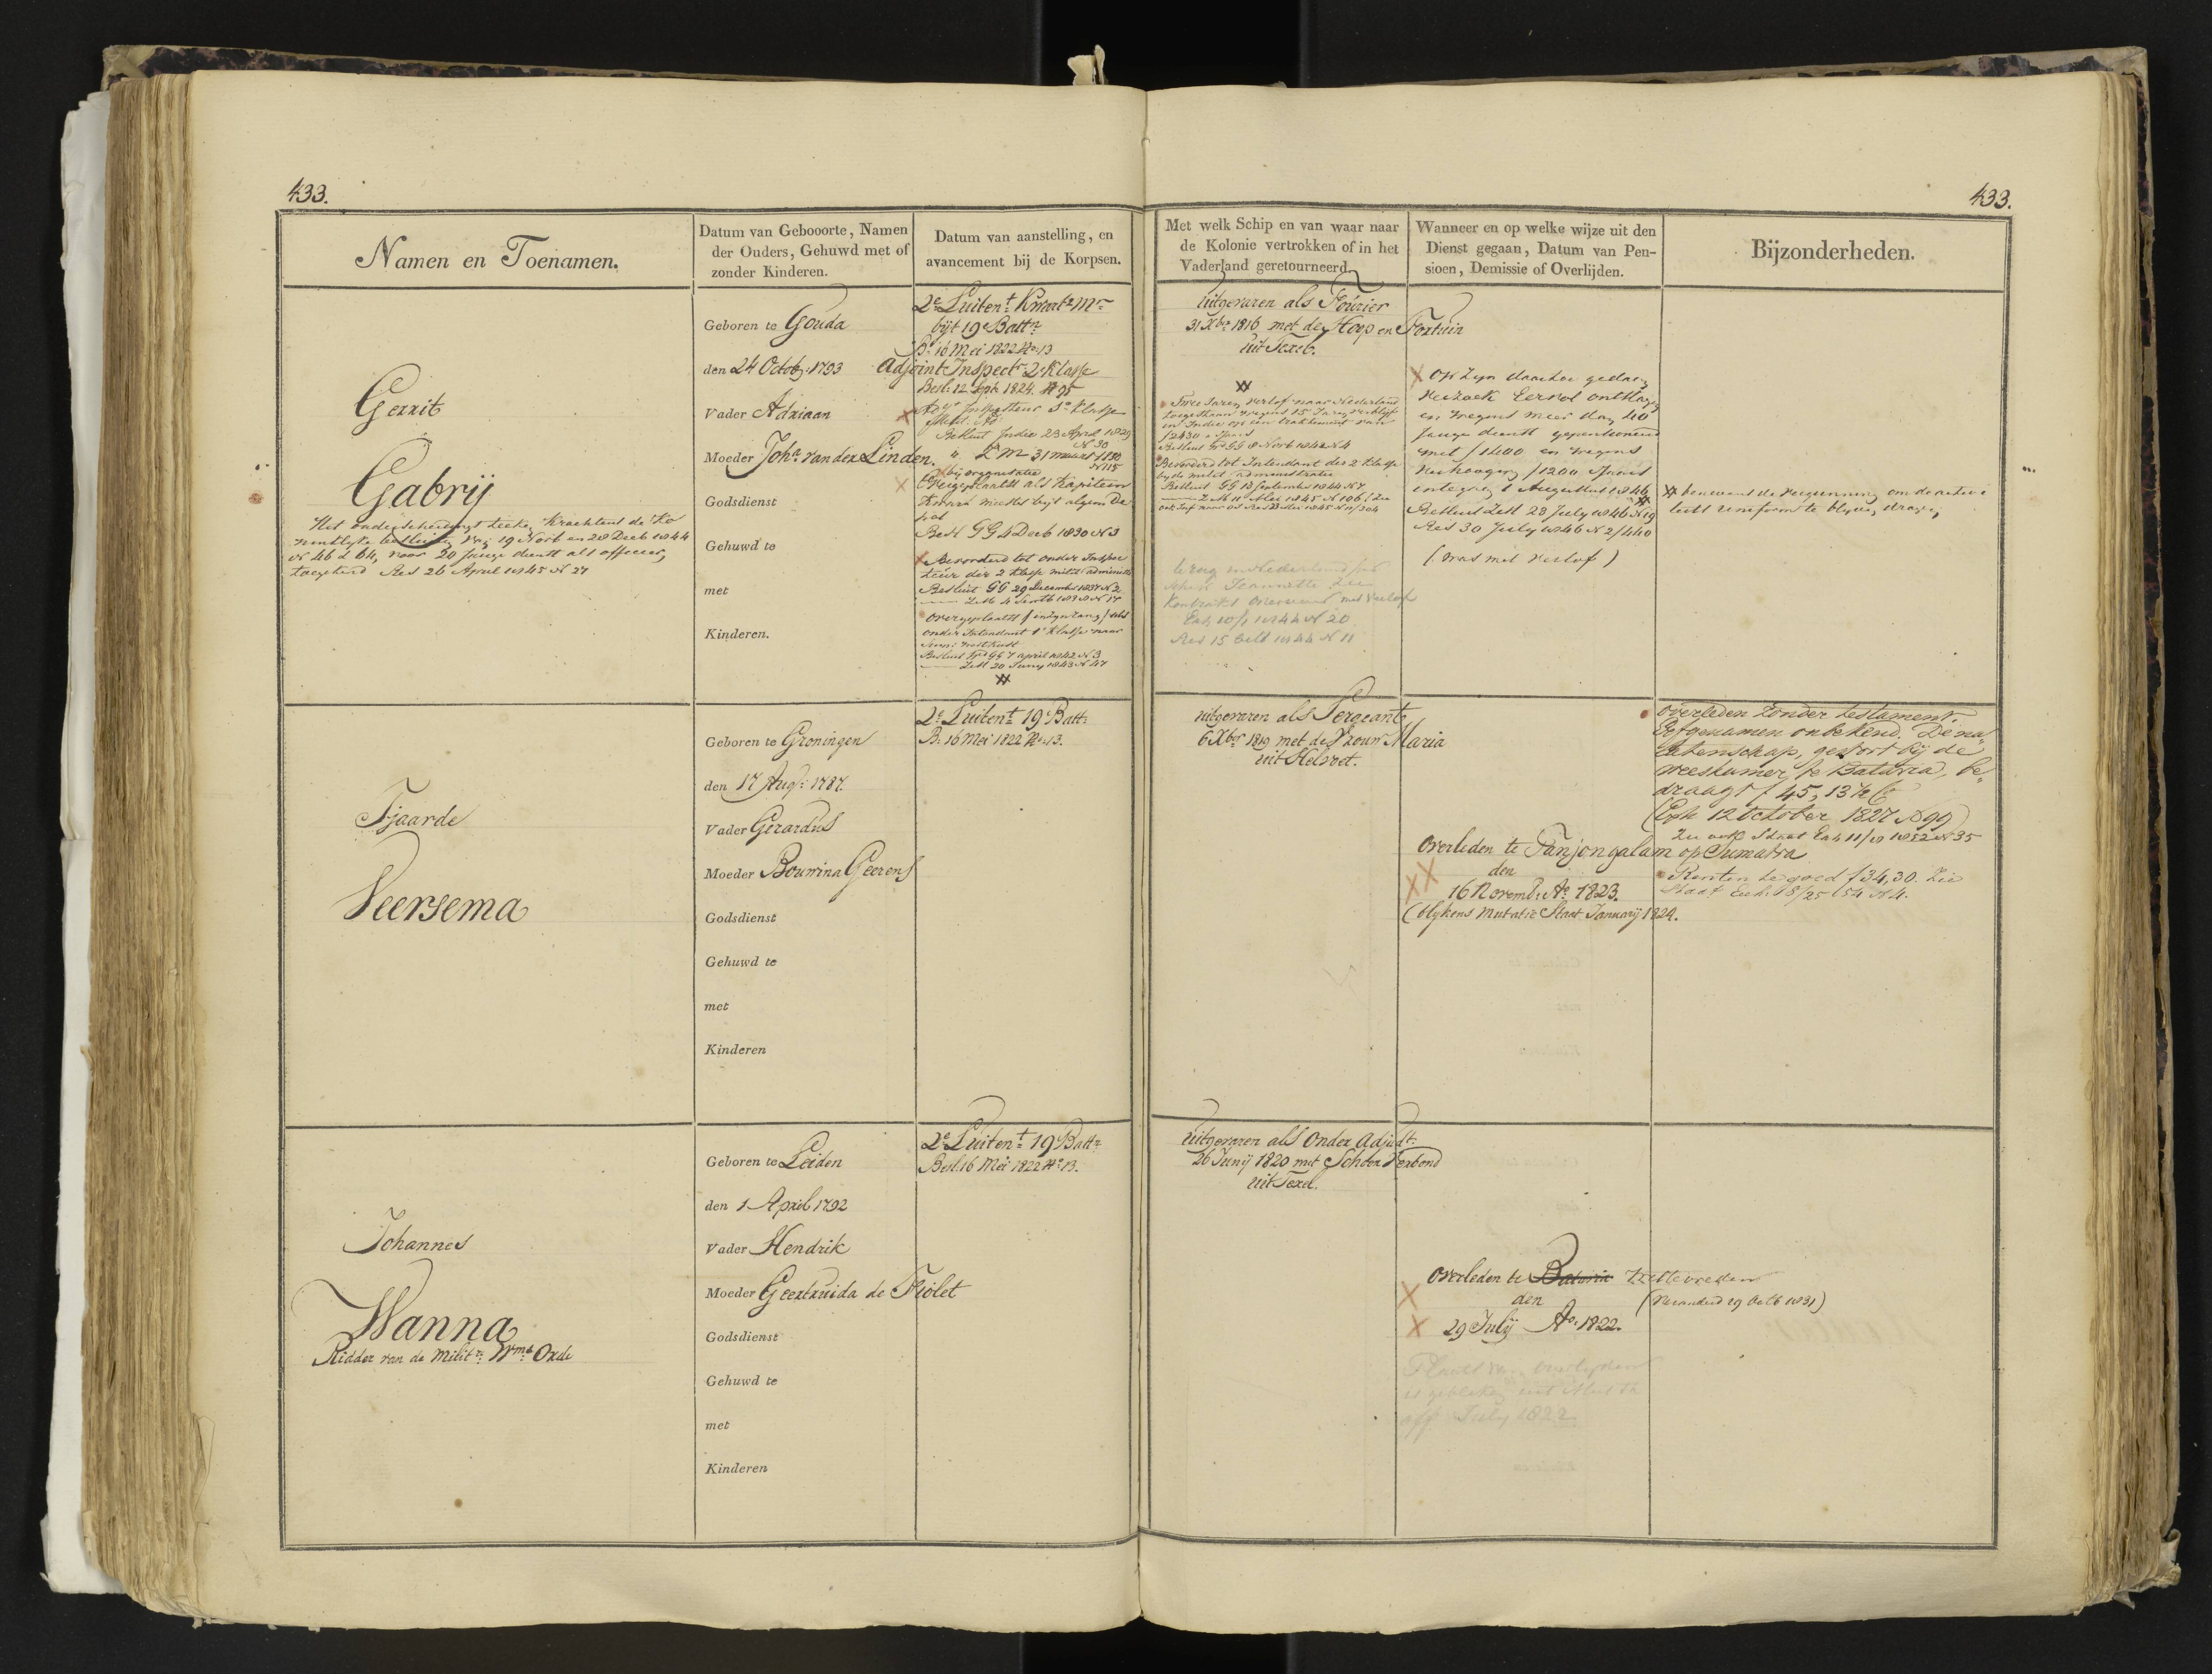 433.
433.
Namen en Toenamen.
Datum van Gebooorte, Namen
der Ouders, Gehuwd met of
zonder Kinderen.
Datum van aanstelling, en
avancement bij de Korpsen.
Met welk Schip en van waar naar
de Kolonie vertrokken of in het
Vaderland geretourneerd.
Wanneer en op welke wijze uit den
Dienst gegaan, Datum van Pen-
sioen, Demissie of Overlijden.
Bijzonderheden.
Gerrit
Gabrij
Het onderscheidings teeken Krachtens de Ko
ninklyke besluiten van 19 Novb en 28 Decb 1844
N 46 & 64, voor 20 Jarige dienst als officier,
toegekend Res 26 April 1845 N 27
Geboren te Gouda
den 24 Octob: 1793
Vader Adriaan
Moeder Joha. van der Linden.
Godsdienst
Gehuwd te
met
Kinderen.
2e Luitent Kwartr Mr
bijt 19e Battn
Bt 16 Mei 1822 No. 13
Adjoint Inspectr 2e Klasse
Besl: 12 Septr 1824. No 95
Besluit Indie 23 April 1829
N 30
" Z M 31 maart 1830
N 115
bij organisatie
Overgeplaatst als Kapitein
Kwart meester bijt algem De
pot
Besl GG 4 Decb 1830 N 3
Bevorderd tot onder Inspec
teur der 2 Klasse milit: administr
Besluit GG 29 December 1837 N 2
overgeplaatst
onder Intendant 1e Klasse naar
Besluit GG 7 april 1842 N 3
ZM 20 Juny 1843 N 47
Uitgevaren als Fourier
31 Xber 1816 met de Hoop en Fortuin
uit Texel.
Twee Jaren verlof naar Nederland
toegestaan wegens 15 Jaren verblyf
in Indie op een traktement van
f 2430 's Jaars
Besluit GG 8 Novb 1842 N 4
Bevorderd tot Intendant der 2 Klasse
by de milit administratie
Besluit GG 13 September 1844 N 7
ZM 11 Mei 1845 N 106
terug in Nederland
schip Jeannette Zie
met verlof
Exh 10/1 1844 N 20
Res 15 1844 N 11
Op zyn daartoe gedaan
Verzoek Eervol ontslagen
en wegens meer dan 40
Jarige dienst gepensioneerd
met f 1400 en wegens
Verhooging f 1200 's Jaars
ingaande 1 Augustus 1846
Besluit ZM 23 July 1846 N 19
Res 30 July 1846 N 2/440
(was met verlof)
benevens de vergunning om de activi
teits uniform te blyven dragen
Tjaarde
Veersema
Geboren te Groningen
den 17 Augs: 1787.
Vader Gerardus
Moeder Bouwina Geerens
Godsdienst
Gehuwd te
met
Kinderen
2e Luitent 19e Battn
B: 16 Mei 1822 No. 13.
uitgevaren als Sergeant
6 Xber 1819 met de Vrouw Maria
uit Helvoet.
Overleden te Tanjongalam op Sumatra
den
16 Novemb: Ao 1823.
(blykens Mutatie Staat Januarij 1824.
Overleden zonder testament.
Erfgenamen onbekend. De na"
latenschap, gestort bij de
weeskamer, te Batavia, be"
draagt f 45, 13½
(Exh 12 October 1827 N 99)
Zie ook Staat Exh 11/10 1852 N 35
Renten te goed f 34,30. Zie
Staat Exh. 18/25 54 N 4.
Johannes
Wanna
Ridder van de Militr: Wms Orde
Geboren te Leiden
den 1 April 1792
Vader Hendrik
Moeder Geertruida de Fiolet
Godsdienst
Gehuwd te
met
Kinderen
2e Luitent 19 Battn
Besl: 16 Mei 1822 No 13.
Uitgevaren als Onder Adjudt:
26 Junij 1820 met Schoon Verbond
uit Texel.
Overleden te Batavia Weltevreden
den (veranderd 29 Octb 1831)
29 Julij Ao. 1822.
Plaats van overlyden
is gebleken uit
July 1822